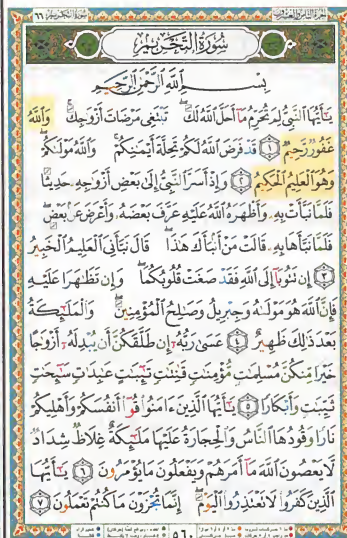 الجزء الثامن والعشرون
سورة التحريم ٦٦
سُورَةُ التَّحْرِيمِ
بِسْمِ اللَّهِ الرَّحْمَٰنِ الرَّحِيمِ
يَٰٓأَيُّهَا ٱلنَّبِيُّ لِمَ تُحَرِّمُ مَآ أَحَلَّ ٱللَّهُ لَكَ ۖ تَبْتَغِى مَرْضَاتَ أَزْوَٰجِكَ ۚ وَٱللَّهُ
غَفُورٌ رَّحِيمٌ ١ قَدْ فَرَضَ ٱللَّهُ لَكُمْ تَحِلَّةَ أَيْمَٰنِكُمْ ۚ وَٱللَّهُ مَوْلَىٰكُمْ ۖ
وَهُوَ ٱلْعَلِيمُ ٱلْحَكِيمُ ٢ وَإِذْ أَسَرَّ ٱلنَّبِيُّ إِلَىٰ بَعْضِ أَزْوَٰجِهِۦ حَدِيثًا
فَلَمَّا نَبَّأَتْ بِهِۦ وَأَظْهَرَهُ ٱللَّهُ عَلَيْهِ عَرَّفَ بَعْضَهُۥ وَأَعْرَضَ عَنۢ بَعْضٍ ۖ
فَلَمَّا نَبَّأَهَا بِهِۦ قَالَتْ مَنْ أَنۢبَأَكَ هَٰذَا ۖ قَالَ نَبَّأَنِىَ ٱلْعَلِيمُ ٱلْخَبِيرُ
٣ إِن تَتُوبَآ إِلَى ٱللَّهِ فَقَدْ صَغَتْ قُلُوبُكُمَا ۖ وَإِن تَظَٰهَرَا عَلَيْهِ
فَإِنَّ ٱللَّهَ هُوَ مَوْلَىٰهُ وَجِبْرِيلُ وَصَٰلِحُ ٱلْمُؤْمِنِينَ ۖ وَٱلْمَلَٰٓئِكَةُ
بَعْدَ ذَٰلِكَ ظَهِيرٌ ٤ عَسَىٰ رَبُّهُۥٓ إِن طَلَّقَكُنَّ أَن يُبْدِلَهُۥٓ أَزْوَٰجًا
خَيْرًا مِّنكُنَّ مُسْلِمَٰتٍ مُّؤْمِنَٰتٍ قَٰنِتَٰتٍ تَٰٓئِبَٰتٍ عَٰبِدَٰتٍ سَٰٓئِحَٰتٍ
ثَيِّبَٰتٍ وَأَبْكَارًا ٥ يَٰٓأَيُّهَا ٱلَّذِينَ ءَامَنُوا۟ قُوٓا۟ أَنفُسَكُمْ وَأَهْلِيكُمْ
نَارًا وَقُودُهَا ٱلنَّاسُ وَٱلْحِجَارَةُ عَلَيْهَا مَلَٰٓئِكَةٌ غِلَاظٌ شِدَادٌ
لَّا يَعْصُونَ ٱللَّهَ مَآ أَمَرَهُمْ وَيَفْعَلُونَ مَا يُؤْمَرُونَ ٦ يَٰٓأَيُّهَا
ٱلَّذِينَ كَفَرُوا۟ لَا تَعْتَذِرُوا۟ ٱلْيَوْمَ ۖ إِنَّمَا تُجْزَوْنَ مَا كُنتُمْ تَعْمَلُونَ ٧
٥٦٠